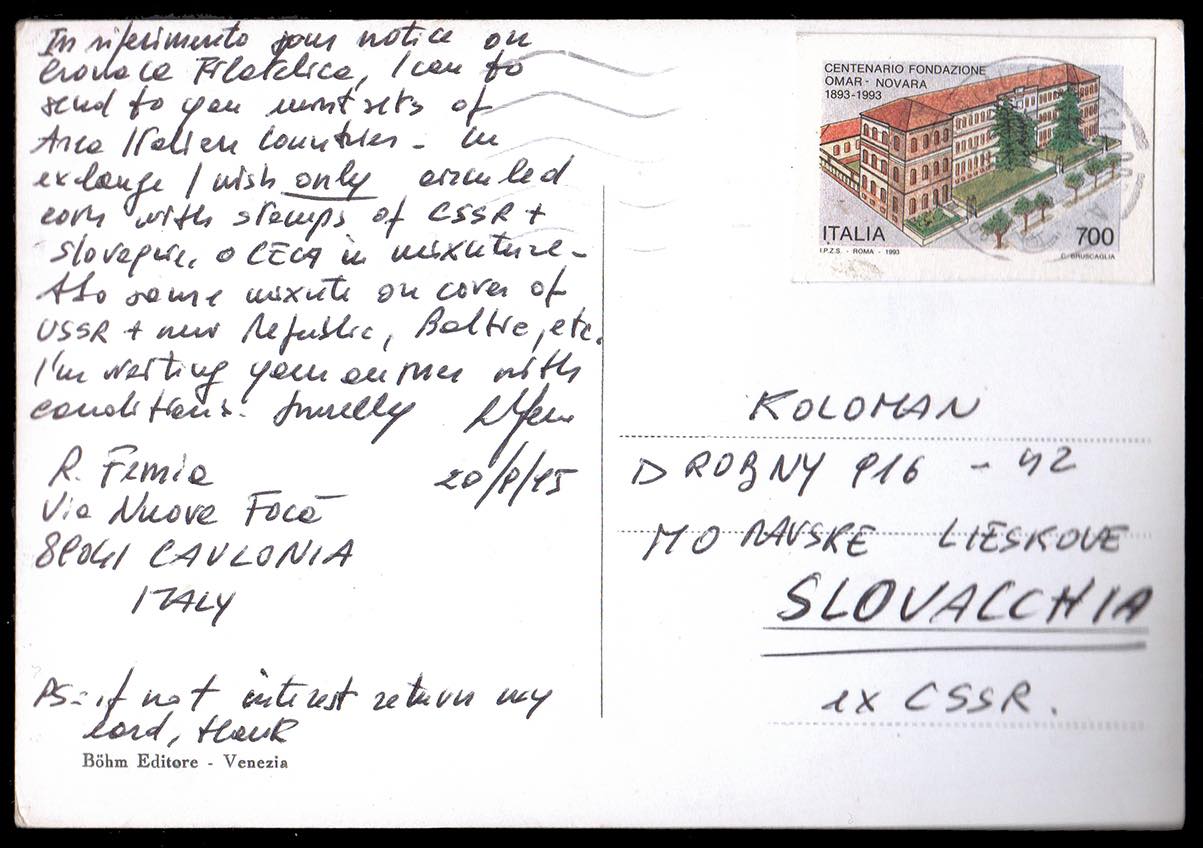 In riferimento your notice on
Cronaca Filatelica, I can to
send to you mint sets of
Area Italian Countries - in
exchange I wish only circuled
cover with stamps of CSSR +
Slovaquie, o CECA in mixuture -
Also some mixute on cover of
USSR + new Republic, Baltic, etc.
I'm waiting your answer with
conditions.
R. Femia 20/8/95
Via Nuova Focà
89041 CAULONIA
ITALY
PS - if not interest return my
card, thank
Böhm Editore - Venezia
CENTENARIO FONDAZIONE
OMAR - NOVARA
1893-1993
ITALIA 700
I.P.Z.S. - ROMA - 1993 C. BRUSCAGLIA
KOLOMAN
DROBNY 916 - 42
MORAVSKE LIESKOVE
SLOVACCHIA
ex CSSR.